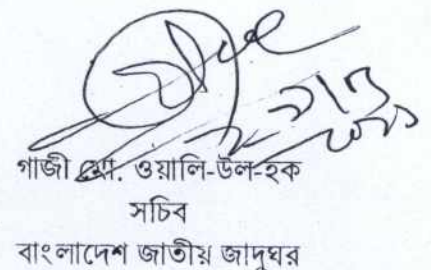 গাজী মো. ওয়ালি-উল-হক
সচিব
বাংলাদেশ জাতীয় জাদুঘর